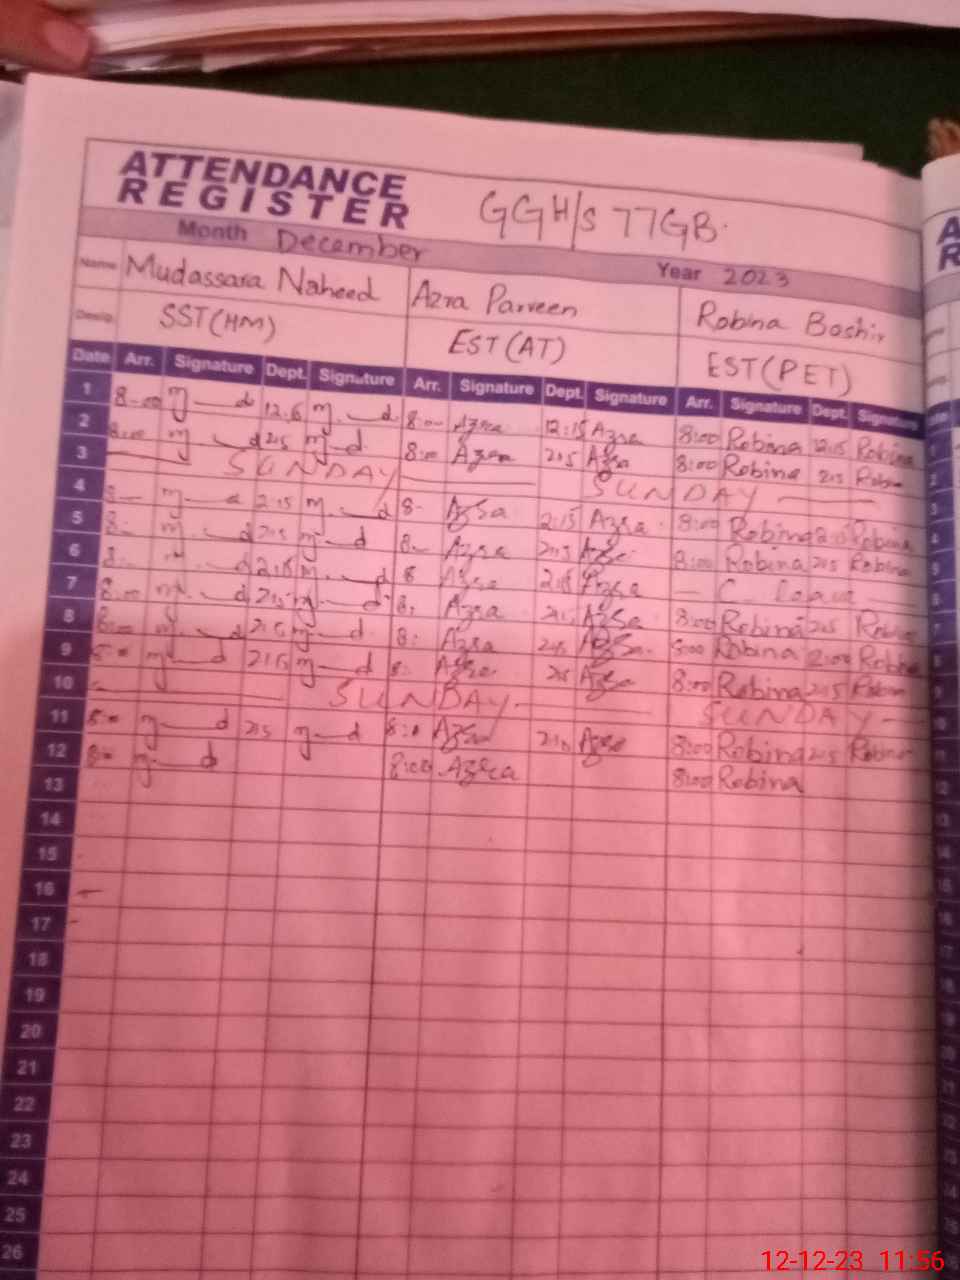 ATTENDANCE
REGISTER
GGH/S 77GB.
Month December Year 2023
Name Mudassara Naheed Azra Parveen Robina Bashir
Desig. SST(HM) EST(AT) EST(PET)
Date Arr. Signature Dept. Signature Arr. Signature Dept. Signature Arr. Signature Dept. Signature
1 8:00 m d 12.15 m d 8:00 Azra 12:15 Azra 8:00 Robina 12:15 Robina
2 8:00 m d 2:15 m d 8:00 Azra 2:15 Azra 8:00 Robina 2:15 Robina
3 SUNDAY SUNDAY
4 8- m d 2.15 m d 8- Azra 2:15 Azra 8:00 Robina 2:15 Robina
5 8- m d 2:15 m d 8- Azra 2:15 Azra 8:00 Robina 2:15 Robina
6 8- m d 2.15 m d 8 Azra 2:15 Azra - C. Leave
7 8:00 m d 2:15 m d 8: Azra 2:15 Azra 8:00 Robina 2:15 Robina
8 8:00 m d 2:15 m d 8: Azra 2:15 Azra 8:00 Robina 12:00 Robina
9 8:00 m d 2:15 m d 8: Azra 2:15 Azra 8:00 Robina 2:15 Robina
10 SUNDAY SUNDAY
11 8:00 m d 2:15 m d 8:0 Azra 2:15 Azra 8:00 Robina 2:15 Robina
12 8:00 m d 8:00 Azra 8:00 Robina
13
14
15
16
17
18
19
20
21
22
23
24
25
26
12-12-23 11:56